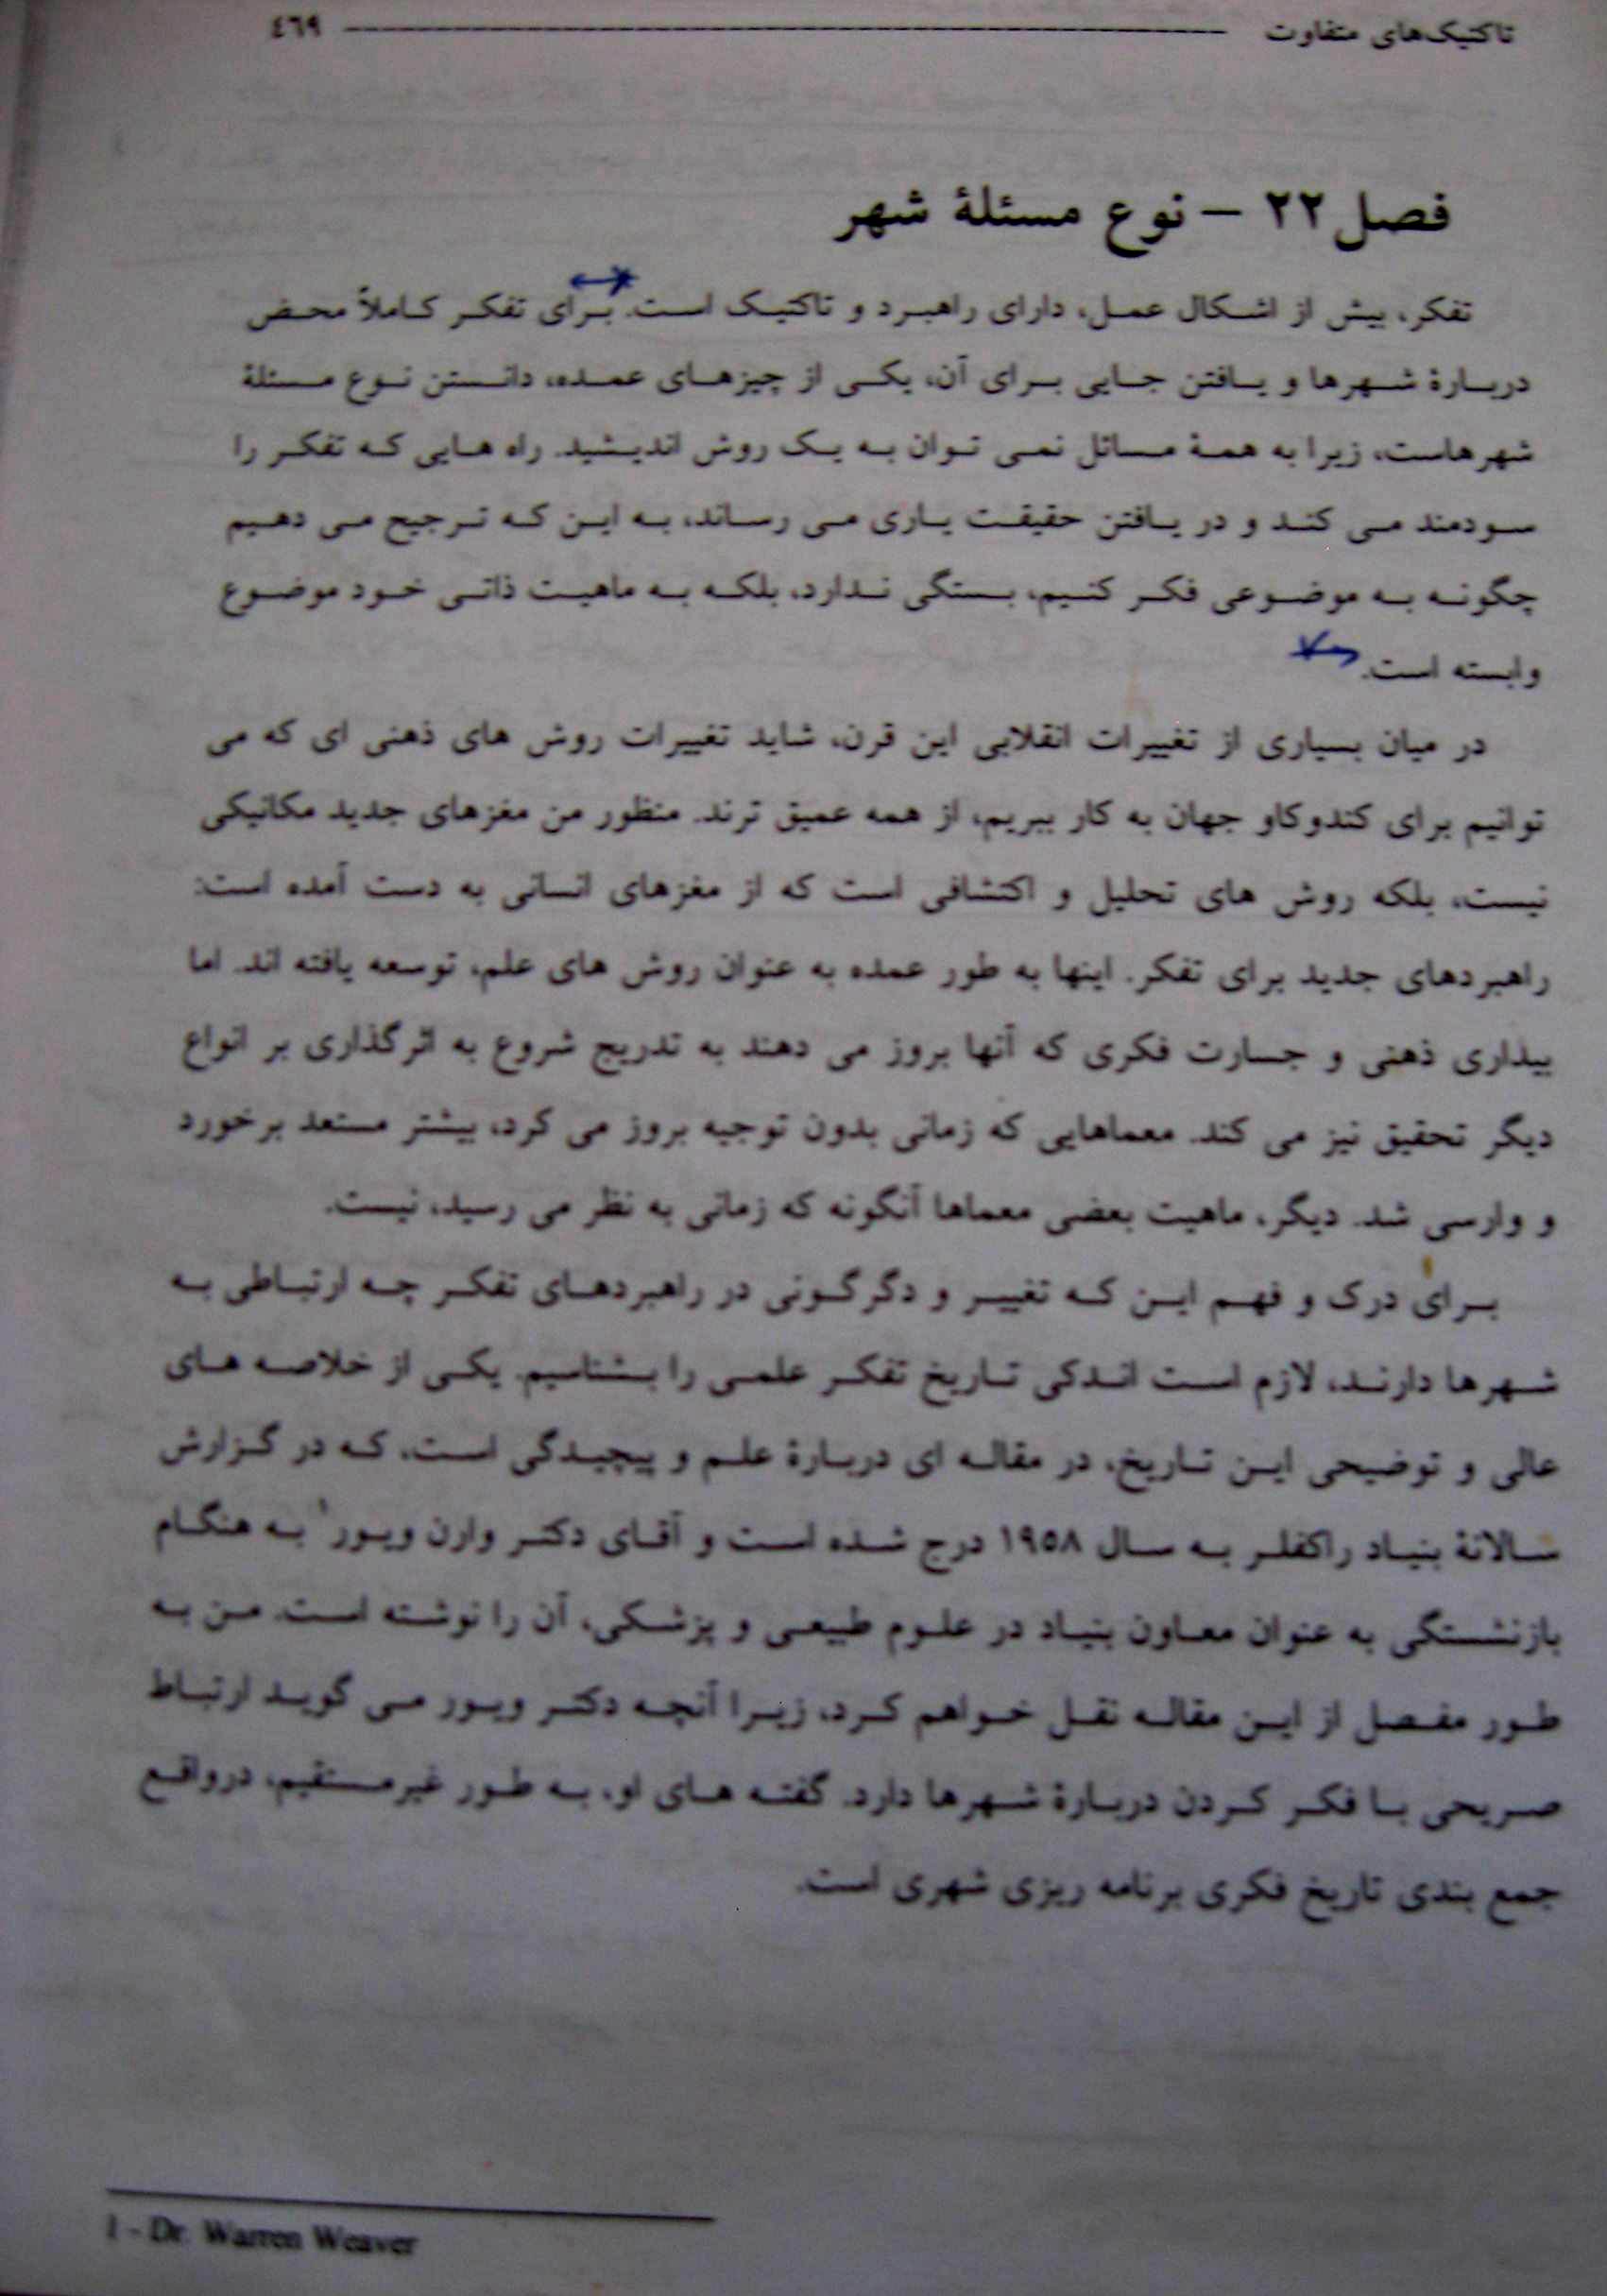 تاکتیک‌های متفاوت ٤٦٩
فصل ۲۲ – نوع مسئلهٔ شهر
تفکر، بیش از اشکال عمل، دارای راهبرد و تاکتیک است. برای تفکر کاملاً محض
دربارهٔ شهرها و یافتن جایی برای آن، یکی از چیزهای عمده، دانستن نوع مسئلهٔ
شهرهاست، زیرا به همهٔ مسائل نمی توان به یک روش اندیشید. راه هایی که تفکر را
سودمند می کند و در یافتن حقیقت یاری می رساند، به این که ترجیح می دهیم
چگونه به موضوعی فکر کنیم، بستگی ندارد، بلکه به ماهیت ذاتی خود موضوع
وابسته است.
در میان بسیاری از تغییرات انقلابی این قرن، شاید تغییرات روش های ذهنی ای که می
توانیم برای کندوکاو جهان به کار ببریم، از همه عمیق ترند. منظور من مغزهای جدید مکانیکی
نیست، بلکه روش های تحلیل و اکتشافی است که از مغزهای انسانی به دست آمده است:
راهبردهای جدید برای تفکر. اینها به طور عمده به عنوان روش های علم، توسعه یافته اند. اما
بیداری ذهنی و جسارت فکری که آنها بروز می دهند به تدریج شروع به اثرگذاری بر انواع
دیگر تحقیق نیز می کند. معماهایی که زمانی بدون توجیه بروز می کرد، بیشتر مستعد برخورد
و وارسی شد. دیگر، ماهیت بعضی معماها آنگونه که زمانی به نظر می رسید، نیست.
برای درک و فهم این که تغییر و دگرگونی در راهبردهای تفکر چه ارتباطی به
شهرها دارند، لازم است اندکی تاریخ تفکر علمی را بشناسیم. یکی از خلاصه های
عالی و توضیحی این تاریخ، در مقاله ای دربارهٔ علم و پیچیدگی است، که در گزارش
سالانهٔ بنیاد راکفلر به سال ۱۹۵۸ درج شده است و آقای دکتر وارن ویور۱ به هنگام
بازنشستگی به عنوان معاون بنیاد در علوم طبیعی و پزشکی، آن را نوشته است. من به
طور مفصل از این مقاله نقل خواهم کرد، زیرا آنچه دکتر ویور می گوید ارتباط
صریحی با فکر کردن دربارهٔ شهرها دارد. گفته های او، به طور غیرمستقیم، درواقع
جمع بندی تاریخ فکری برنامه ریزی شهری است.
1 - Dr. Warren Weaver